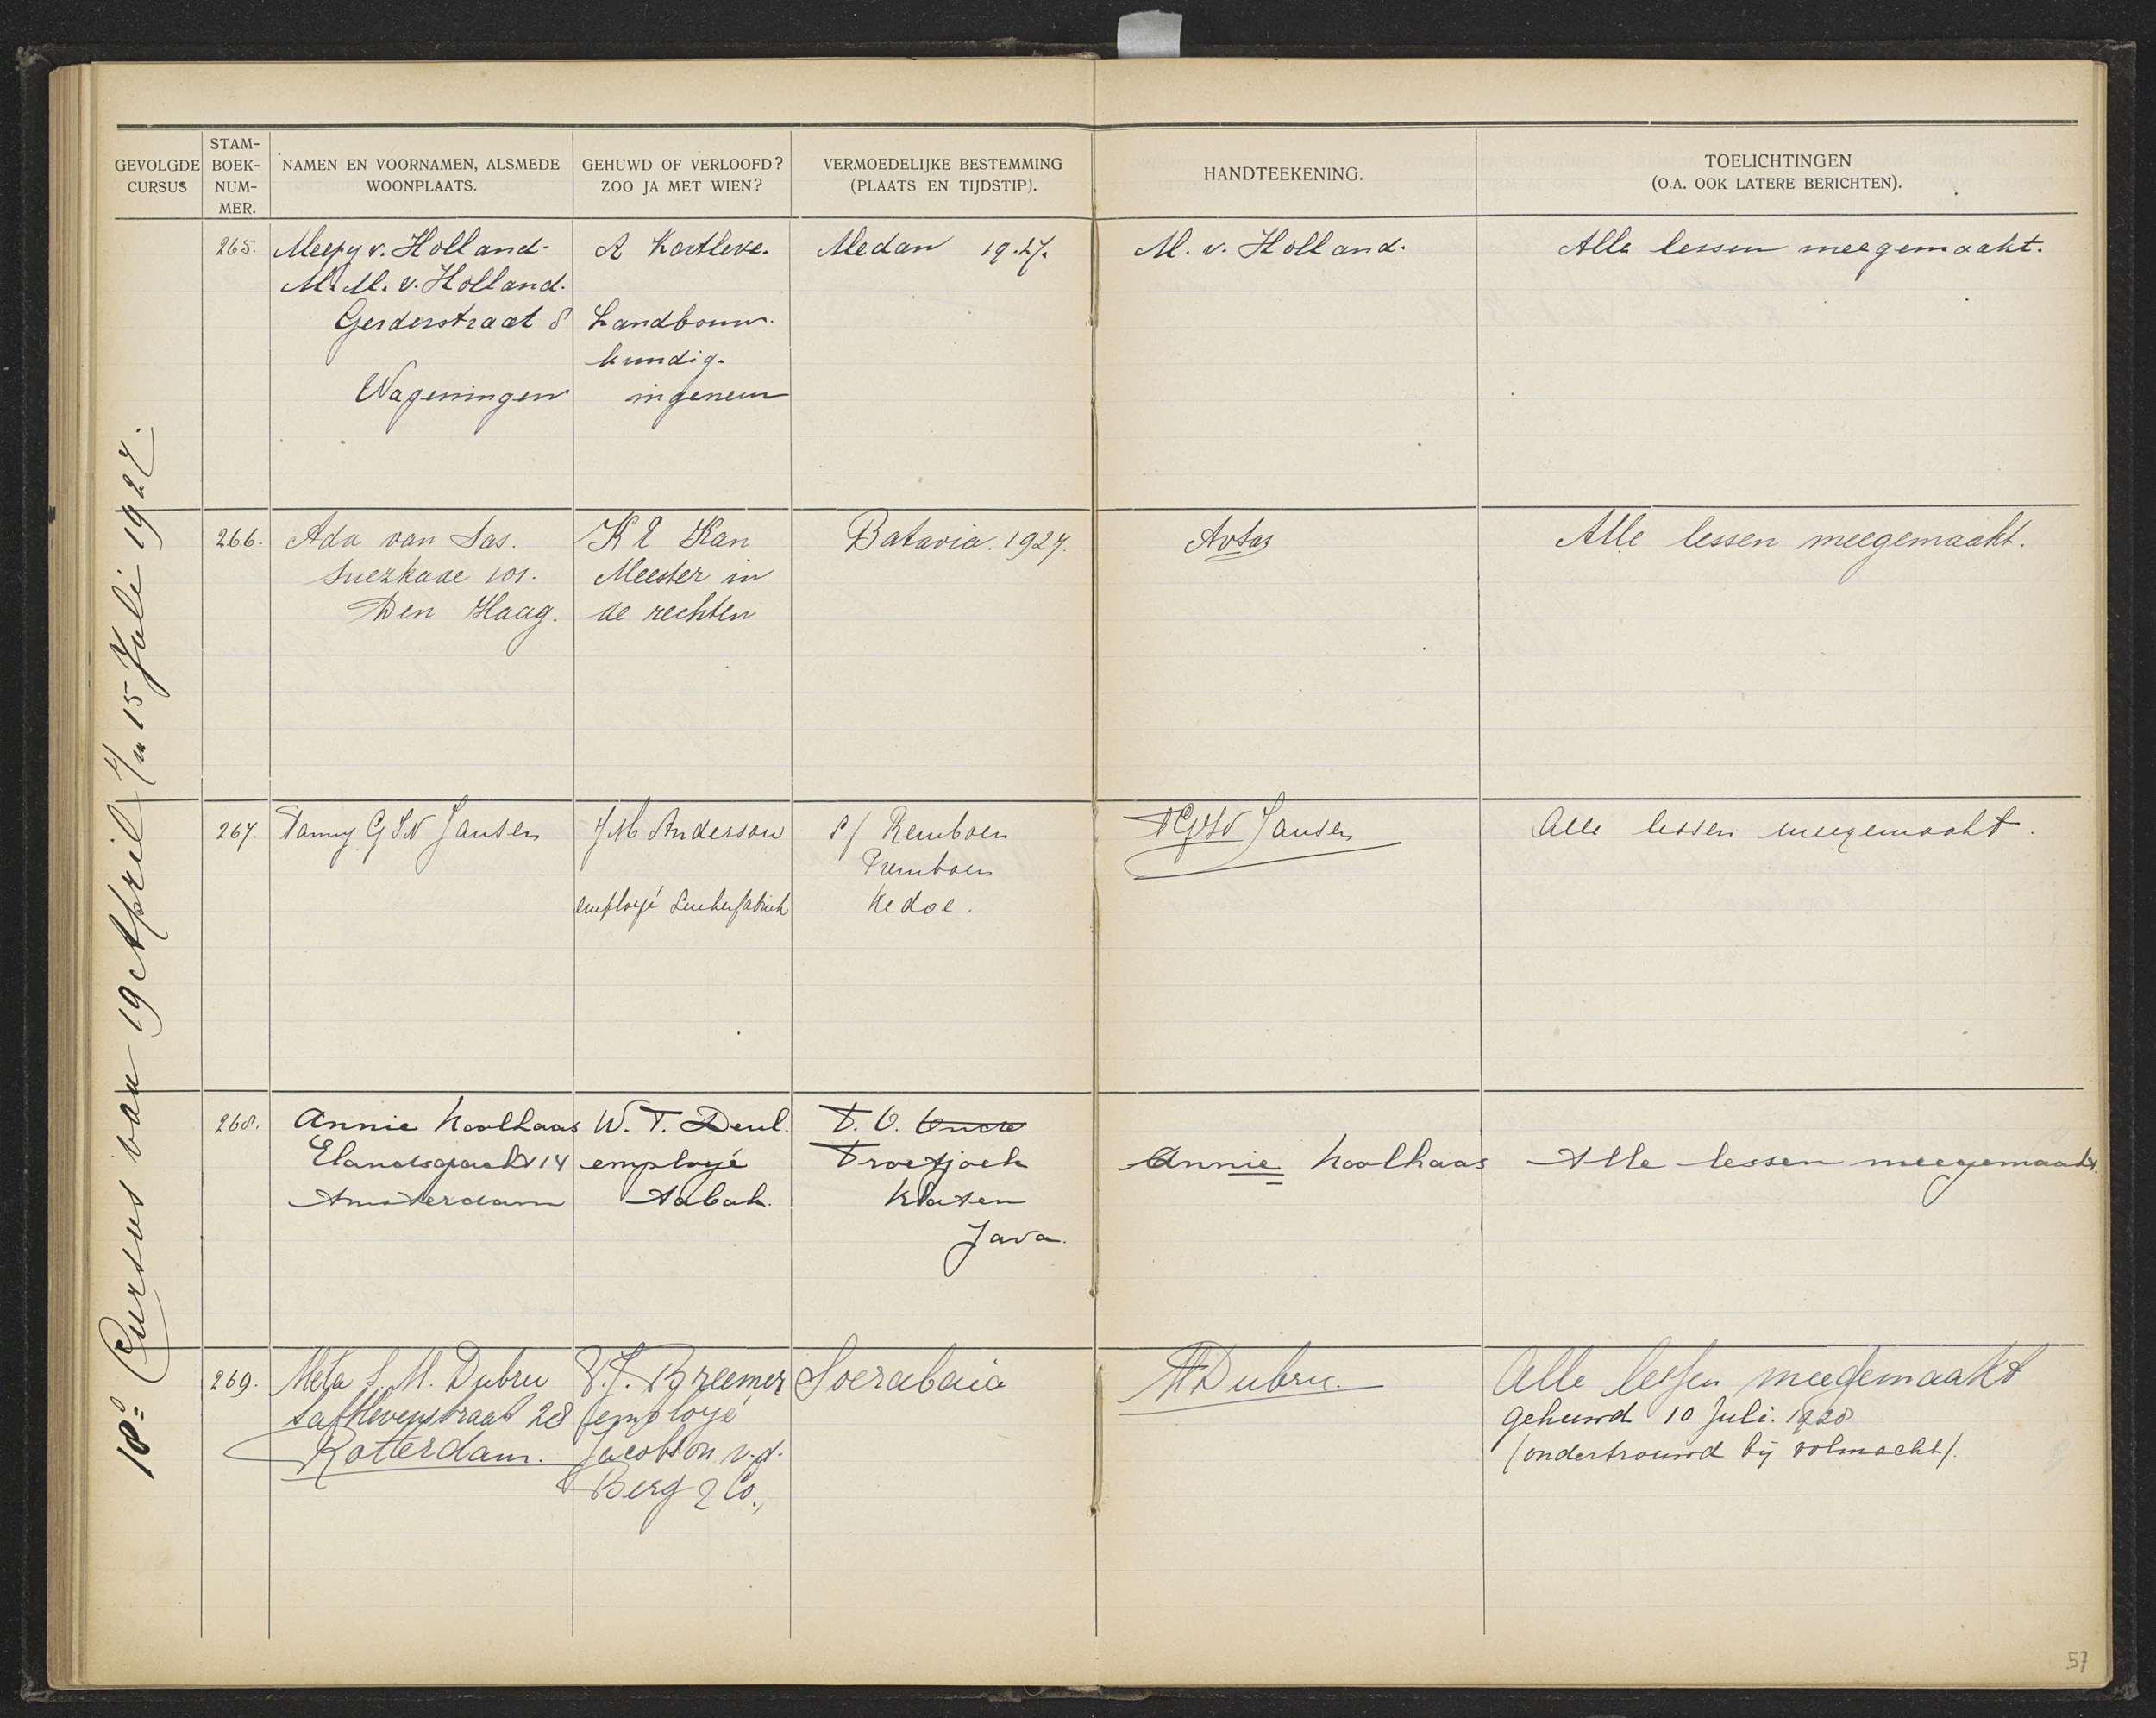 GEVOLGDE
CURSUS
STAM-
BOEK-
NUM-
MER.
NAMEN EN VOORNAMEN, ALSMEDE
WOONPLAATS.
GEHUWD OF VERLOOFD?
ZOO JA MET WIEN?
VERMOEDELIJKE BESTEMMING
(PLAATS EN TIJDSTIP).
HANDTEEKENING.
TOELICHTINGEN
(O.A. OOK LATERE BERICHTEN).
18e Cursus van 19 April t/m 15 Juli 1927.
265.
Meepy v. Holland.
M. M. v. Holland.
Gerdesstraat 8
Wageningen
A Kortleve.
Landbouw.
kundig.
ingenieur
Medan 1927.
M. v. Holland.
Alle lessen meegemaakt.
266.
Ada van Sas.
Suezkade 101.
Den Haag.
K E Kan
Meester in
de rechten
Batavia. 1927.
AvSas
Alle lessen meegemaakt.
267.
G S N Jansen
J M Anderson
employé Suikerfabriek
s/f Remboen
Premboen
Kedoe.
Jansen
Alle lessen meegemaakt.
268.
Annie Koolhaas
Elandsgracht 14
Amsterdam
W. T. Deul.
employé
Tabak.
T. O.
Troetjoek
Klaten
Java.
Annie Koolhaas
Alle lessen meegemaakt.
269.
Meta S. M. Dubru
Saftlevenstraat 28
Rotterdam.
Breemer
employé
Jacobson v.d.
Berg & Co.,
Soerabaia
MDubru.
Alle lessen meegemaakt
gehuwd 10 Juli. 1928
(ondertrouwd bij volmacht).
57